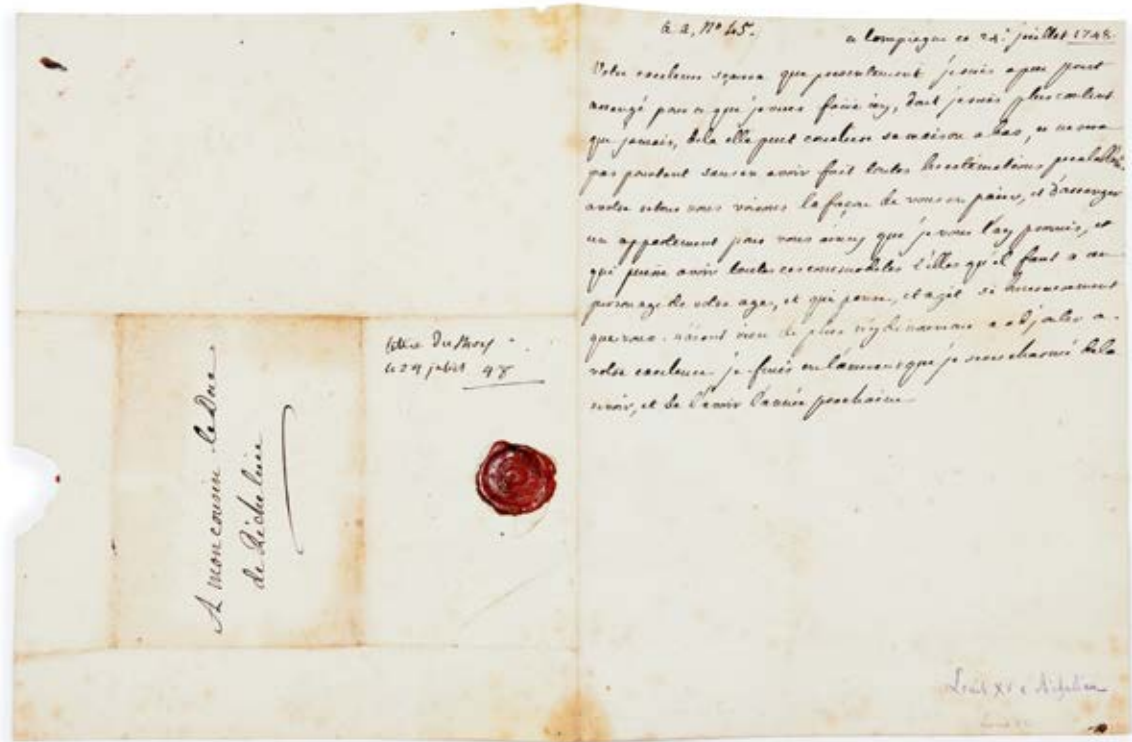 A mon cousin le Duc
de Richelieu
lettre du Roy
le 24 juillet 48
a a, Nº 45.
a Compiegne ce 24e juillet 1748
Votre excellence sçaura que presentement je suis a peu pres
arrangé pour ce que je veux faire icy, dont je suis plus content
que jamais, elle peut sa maison a bas,
pas pourtant sans en avoir fait toutes les estimations
nous voirons la façon de vous en paier, et d'arranger
un appartement pour vous ainsy que je vous l'ay promis, et
qui puisse avoir toutes ces commodités telles qu'il faut a un
personage de votre age, et qui pense, et agit si
que vous. rien de plus a
votre excellence je finis en l'assurant que je seres charmé de la
revoir, et de l'avoir l'année prochaine
Louis XV a Richelieu